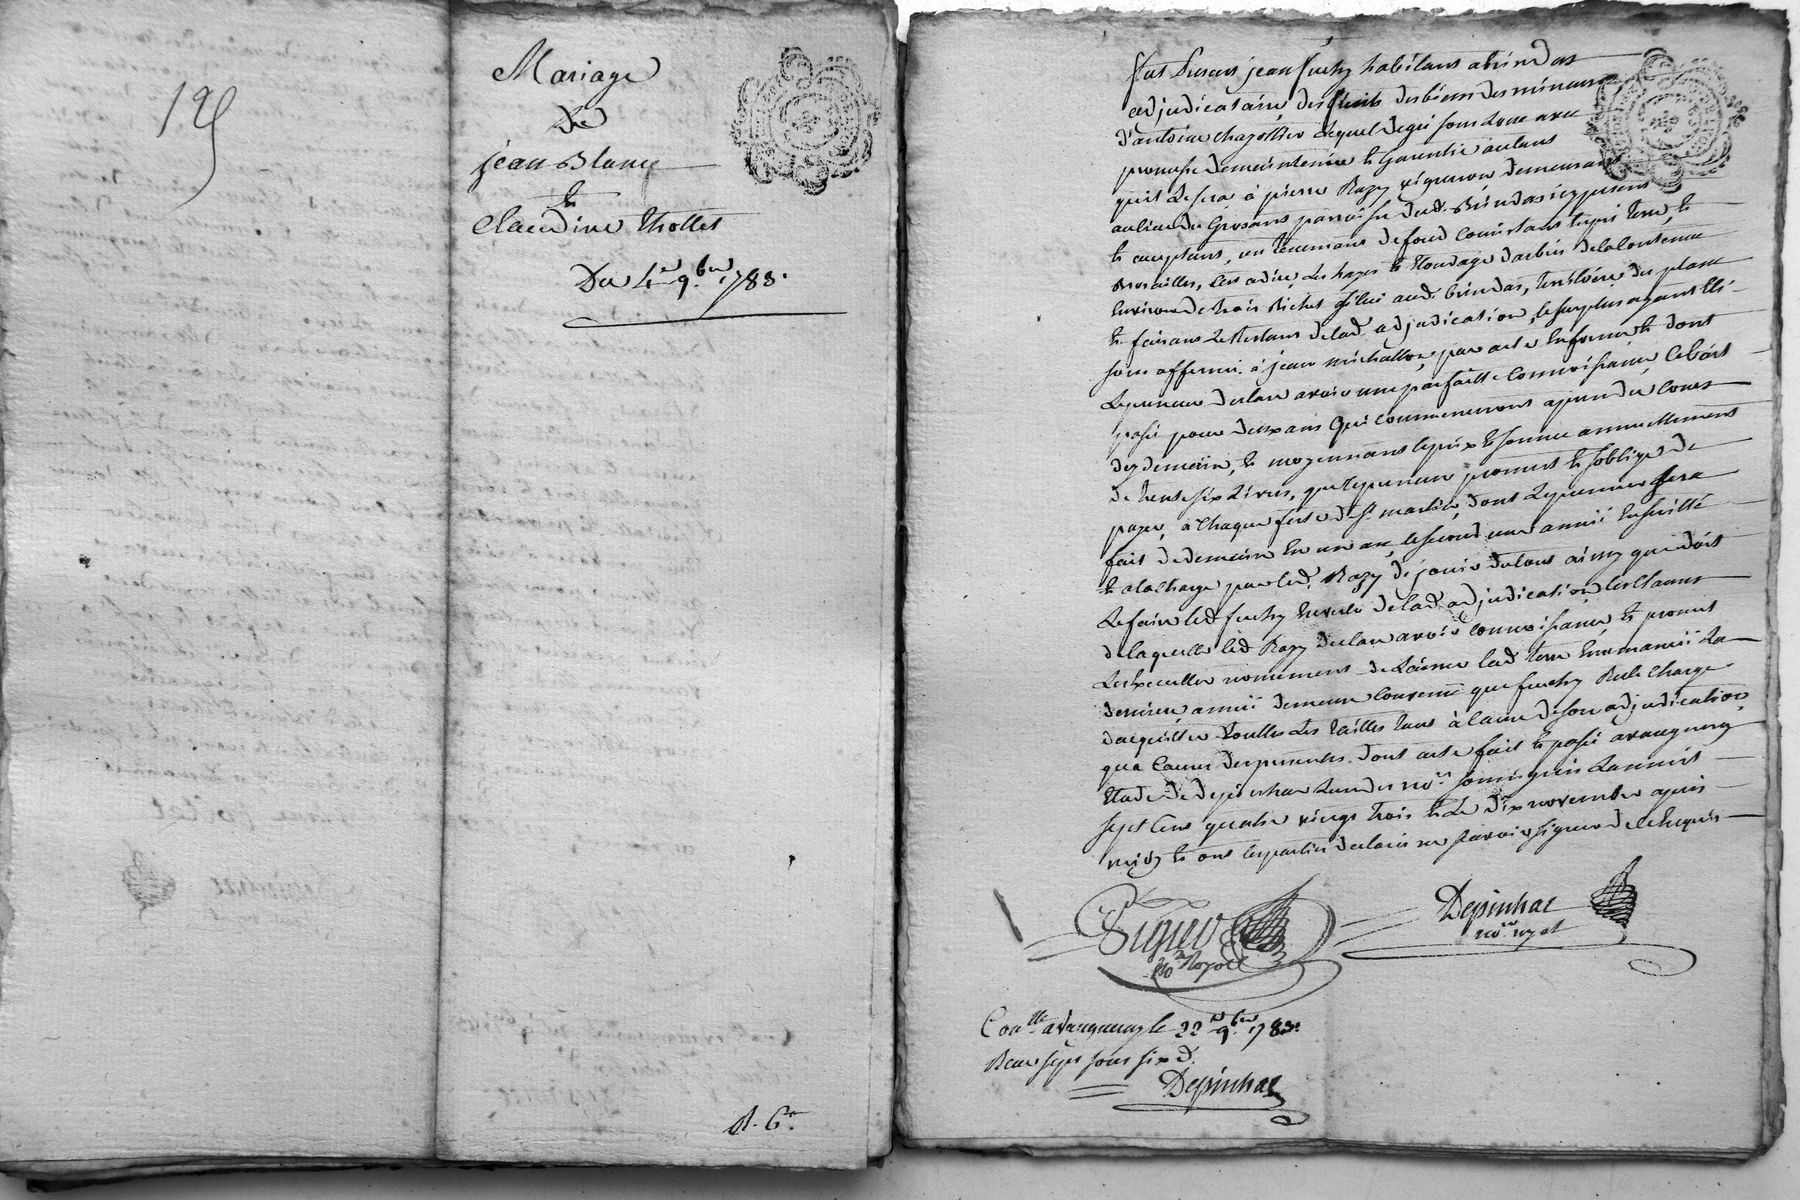 125
Mariage
de
jean Blanc
et
Claudine Thollet
Du 4e 9.bre 1783.
R. Gé.
fut présent jean fuchy habitant a brindas
adjudicataire des fruits des biens des mineurs
d'antoine chazottier lequel de gré sous loue avec
promesse de maintenir et garentir autant
qu'il le sera à pierre Razy vigneron demeurant
au lieu de Grosans parroisse dud. Brindas icy present
et acceptant, un tenement de fond consistant en pré terre, et
brosailles, les hayes et
environ de trois bichet aud. brindas, territoire du plane
et faisant le restant de lad. adjudication, le surplus ayant été
sous affermé à jean michallon, par acte en forme et dont
le preneur declare avoir une parfaitte connoissance, le bail
passé pour deux ans qui commenceront a prendre cours
dez demain, et moyennant le prix et somme annuellement
de trente six Livres, que le preneur promet et s'oblige de
payer, à chaque fete de st. martin, dont le premier sera
fait de demain en un an, le second une année ensuitte
et a la charge par led. Razy de jouir du tout ainsy que doit
le faire led fuchy en vertu de lad adjudication des clauses
de laquelle led Razy declare avoir connoissance et promet
les executter nommement de laisser lad terre la
derniere année demeure convenu que fuchy reste chargé
d'acquitter touttes les tailles tant à cause de son adjudication
qu'a cause des presentes. dont acte fait et passé a vaugneray
etude de depinhac l'un des nores. soussignés l'an mil
sept cent quatre vingt trois et le dix novembre après
midy et ont les parties declaré ne sçavoir signer de ce enquis
Viguer
no.re Royal
Depinhac
no.re royal
Con.lle a vaugneray le 22e 9.bre 1783.
Reçu sept sous six d.
Depinhac